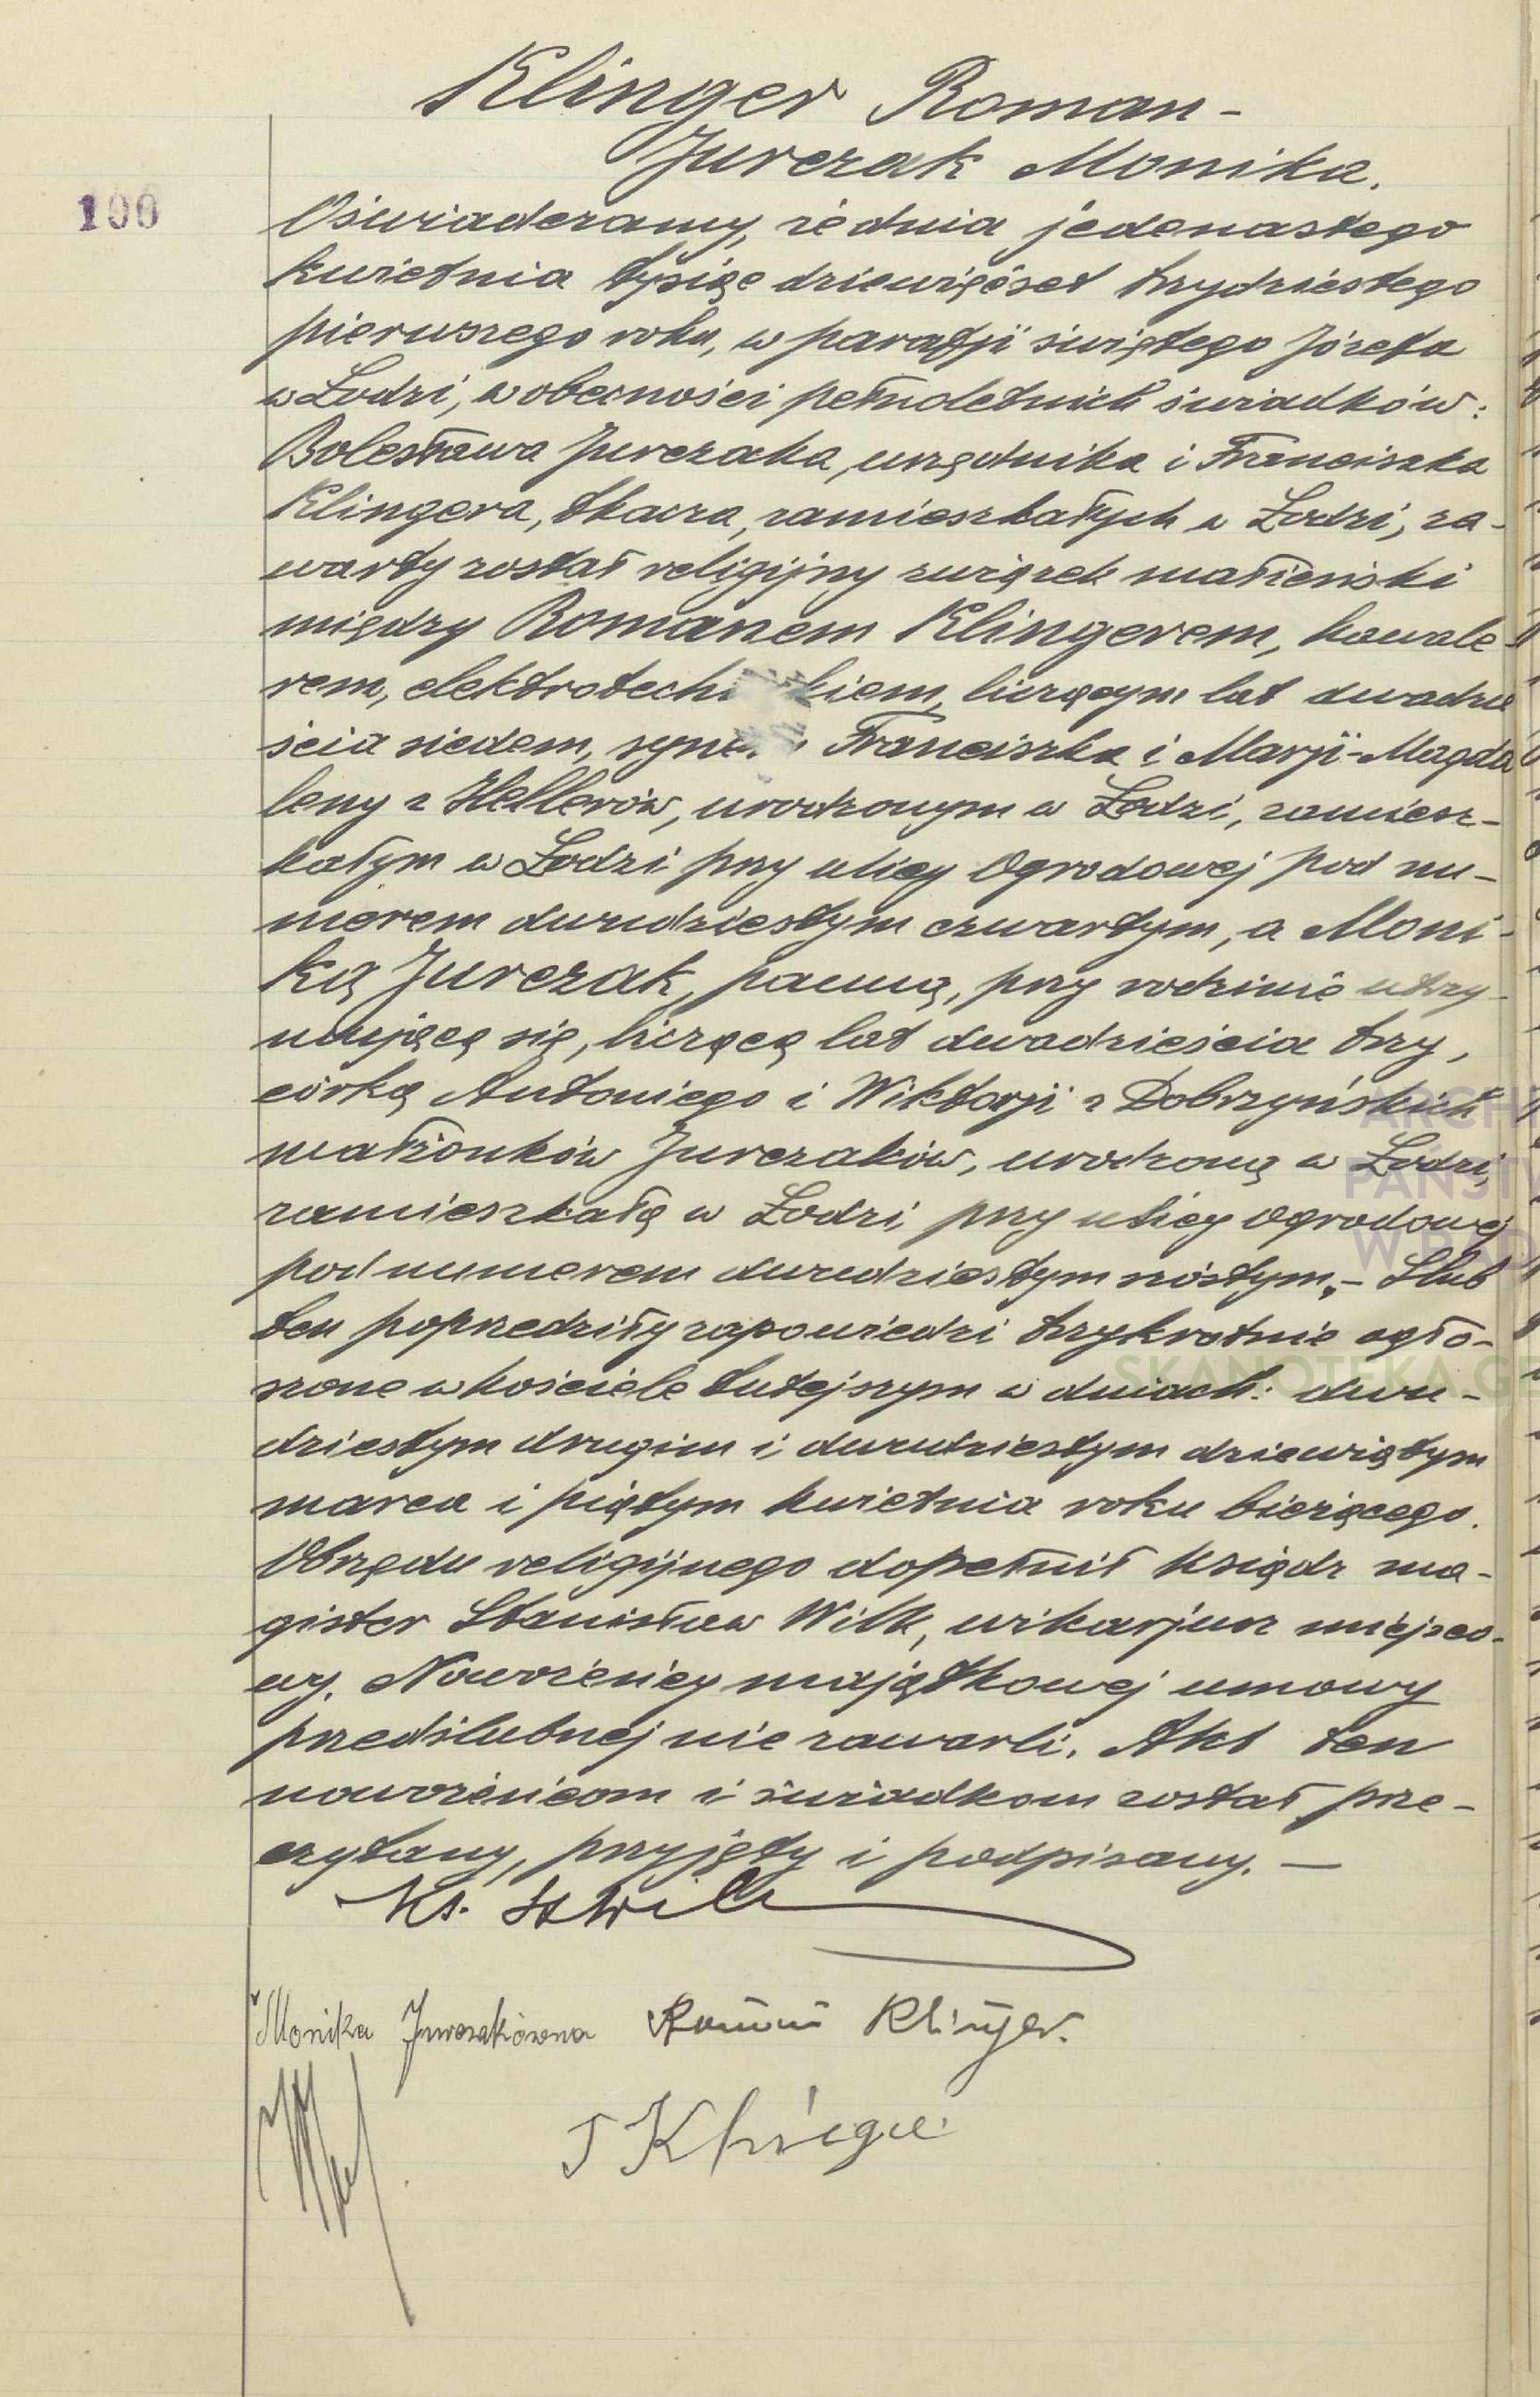 Klinger Roman -
Jurczak Monika.
100
Oświadczamy, że dnia jedenastego
kwietnia tysiąc dziewięćset trzydziestego
pierwszego roku, w parafji świętego Józefa
w Łodzi, w obecności pełnoletnich świadków:
Bolesława Jurczaka, urzędnika i Franciszka
Klingera, tkacza, zamieszkałych w Łodzi, za-
warty został religijny związek małżeński
między Romanem Klingerem, kawale-
rem, elektrotechnikiem, liczącym lat dwadzie
ścia siedem, synem Franciszka i Marji-Magda
leny z Hellerów, urodzonym w Łodzi, zamiesz-
kałym w Łodzi przy ulicy Ogrodowej pod nu-
merem dwudziestym czwartym, a Moni-
ką Jurczak, panną, przy rodzinie utrzy-
mującą się, liczącą lat dwadzieścia trzy,
córką Antoniego i Wiktorji z Dobrzyńskich
małżonków Jurczaków, urodzoną w Łodzi,
zamieszkałą w Łodzi przy ulicy Ogrodowej
pod numerem dwudziestym szóstym. - Ślub
ten poprzedziły zapowiedzi trzykrotnie ogło-
szone w kościele tutejszym w dniach: dwu-
dziestym drugim i dwudziestym dziewiątym
marca i piątym kwietnia roku bieżącego.
Obrzędu religijnego dopełnił ksiądz ma-
gister Stanisław Wilk, wikarjusz miejsco-
wy. Nowożeńcy majątkowej umowy
przedślubnej nie zawarli. Akt ten
nowożeńcom i świadkom został prze-
czytany, przyjęty i podpisany. —
Ks. St Wilk
Monika Jurczakówna Roman Klinger.
ARCHI
PAŃSTW
W RAD
SKANOTEKA GE